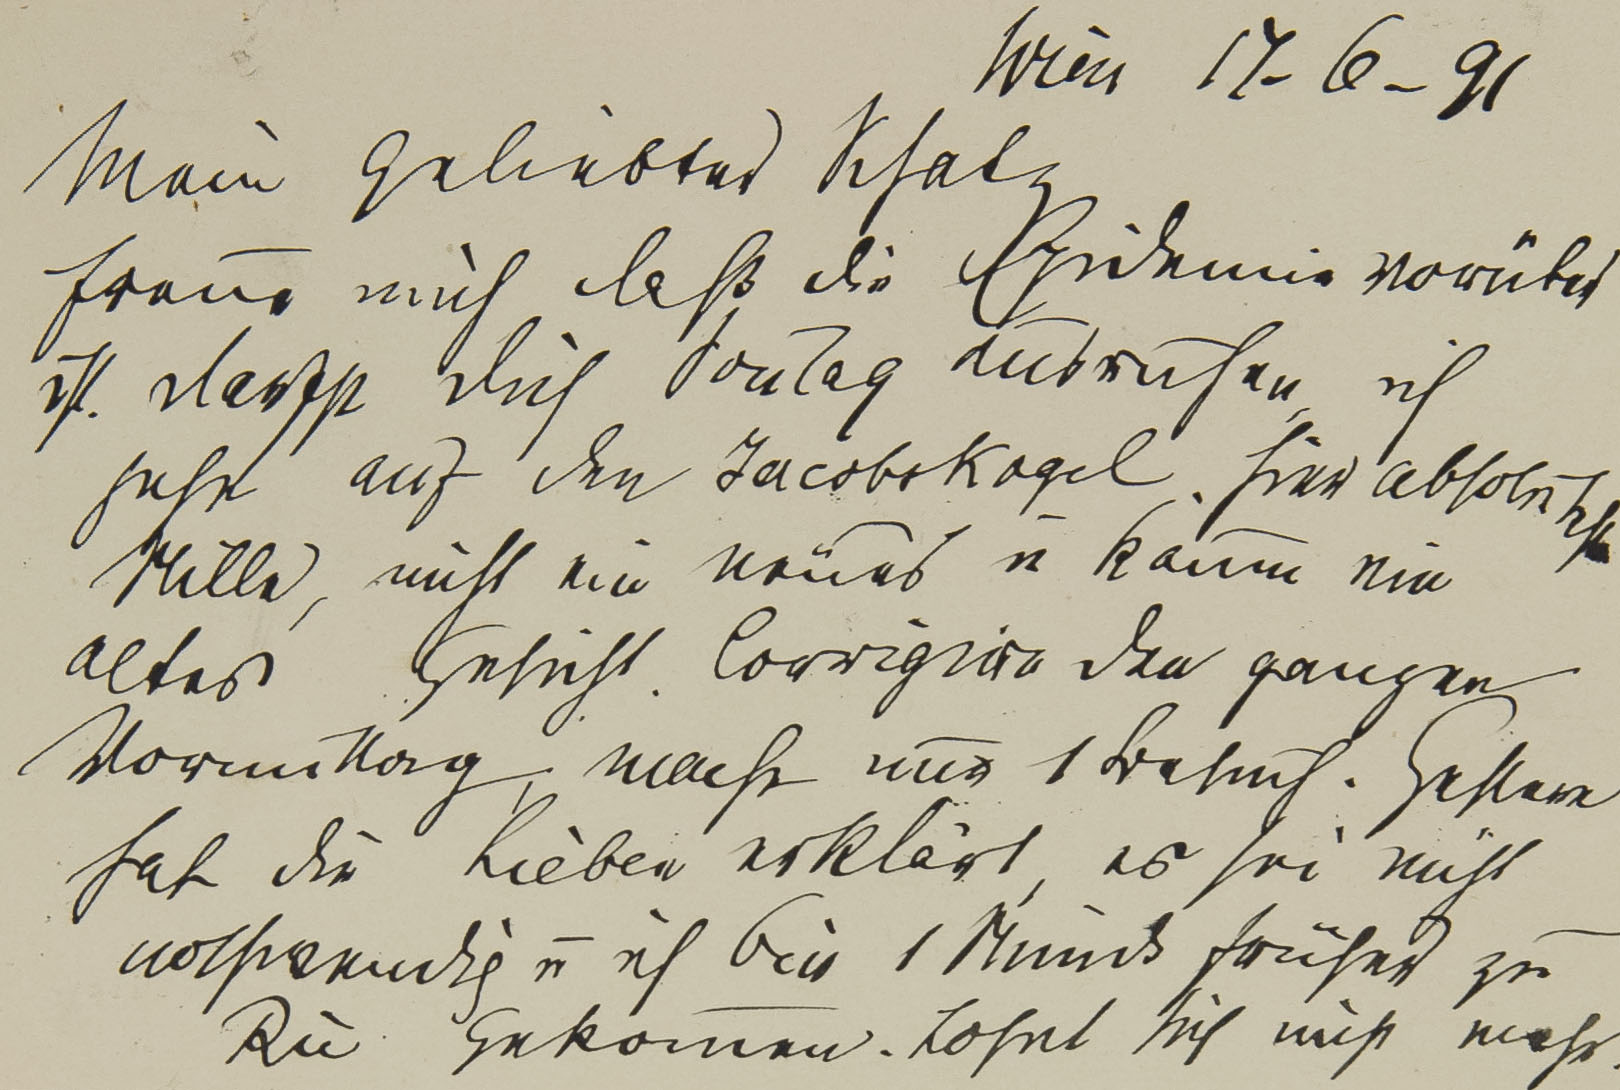 Wien 17-6-91
Mein geliebter Schatz
freue mich daß die Epidemie vorüber
ist. darfst dich Sontag ausruhen, ich
gehe auf den Jacobskogel. hier absoluteste
Stille, nicht ein neues u kaum ein
altes Gesicht. Corrigire den ganzen
Vormittag, mache nur 1 Besuch. Gestern
hat die Lieben erklärt, es sei nicht
nothwendig u ich bin 1 Stunde früher zu
Rie gekommen. Lohnt sich nicht mehr.